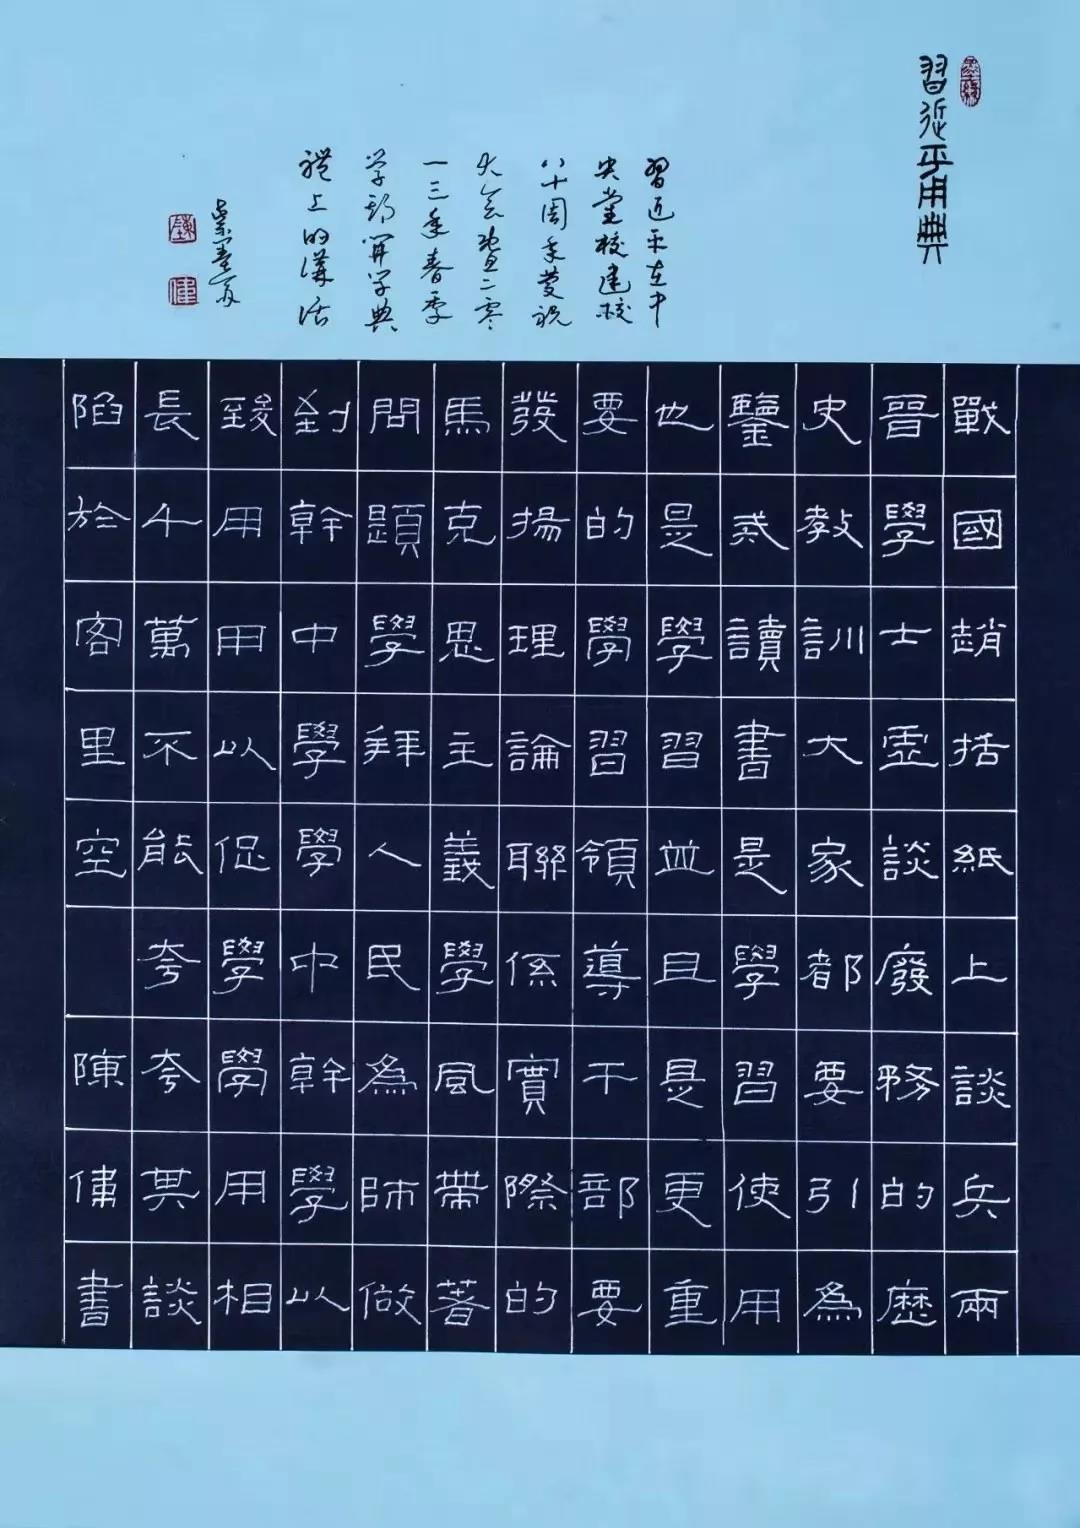 習近平用典
習近平在中
央黨校建校
八十周年慶祝
大會暨二零
一三年春季
學期開學典
禮上的講話
戰國趙括紙上談兵兩
晉學士虛談廢務的歷
史教訓大家都要引為
鑒戒讀書是學習使用
也是學習並且是更重
要的學習領導干部要
發揚理論聯係實際的
馬克思主義學風帶著
問題學拜人民為師做
到幹中學學中幹學以
致用用以促學學用相
長千萬不能夸夸其談
陷於客里空 陳書